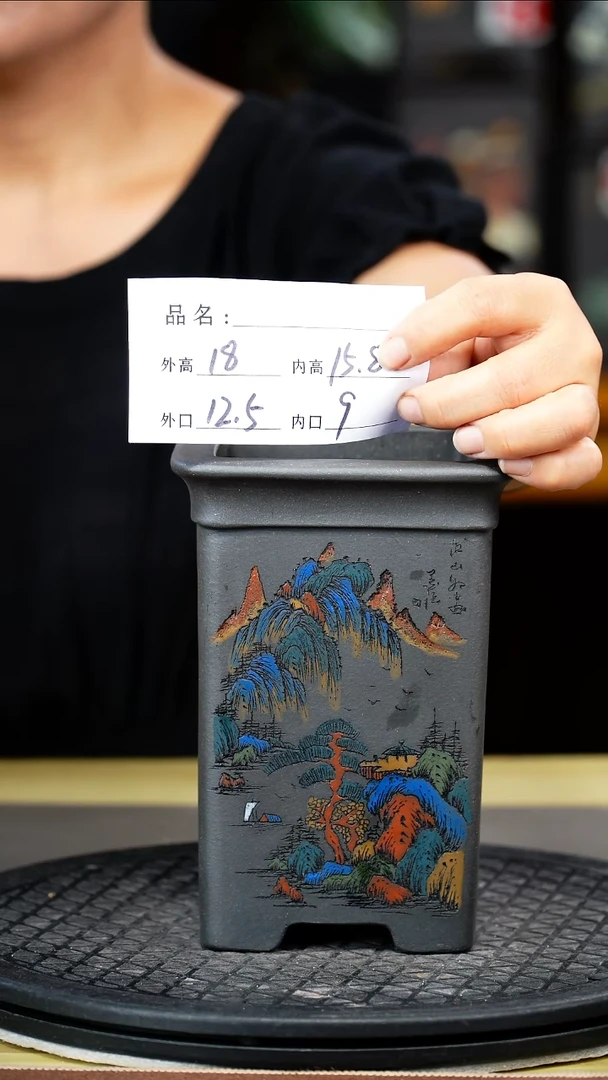 品名：
外高 18 内高 15.8
外口 12.5 内口 9